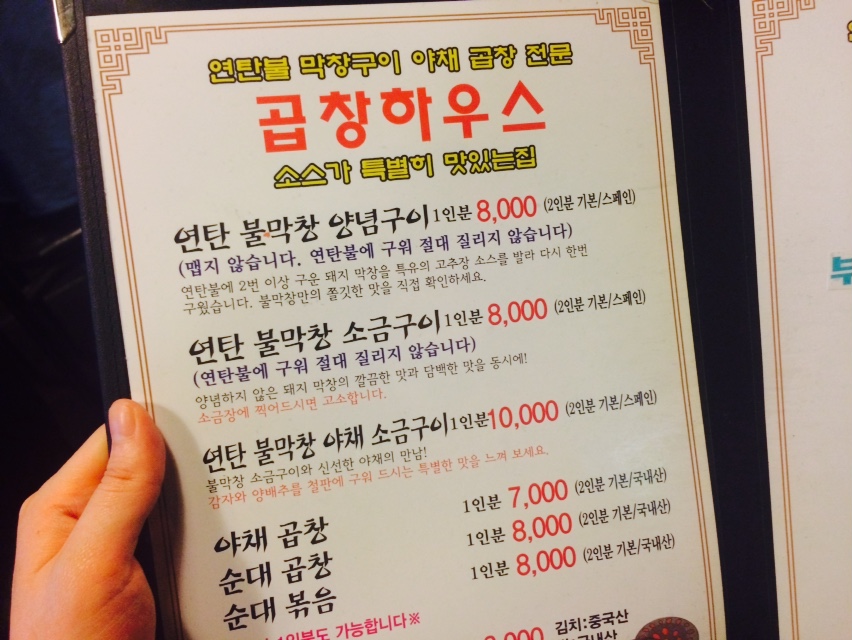 연탄불 막창구이 야채 곱창 전문
곱창하우스
소스가 특별히 맛있는집
연탄 불막창 양념구이 1인분 8,000 (2인분 기본/스페인)
(맵지 않습니다. 연탄불에 구워 절대 질리지 않습니다)
연탄불에 2번 이상 구운 돼지 막창을 특유의 고추장 소스를 발라 다시 한번
구웠습니다. 불막창만의 쫄깃한 맛을 직접 확인하세요.
연탄 불막창 소금구이 1인분 8,000 (2인분 기본/스페인)
(연탄불에 구워 절대 질리지 않습니다)
양념하지 않은 돼지 막창의 깔끔한 맛과 담백한 맛을 동시에!
소금장에 찍어드시면 고소합니다.
연탄 불막창 야채 소금구이 1인분 10,000 (2인분 기본/스페인)
불막창 소금구이와 신선한 야채의 만남!
감자와 양배추를 철판에 구워 드시는 특별한 맛을 느껴 보세요.
야채 곱창 1인분 7,000 (2인분 기본/국내산)
순대 곱창 1인분 8,000 (2인분 기본/국내산)
순대 볶음 1인분 8,000 (2인분 기본/국내산)
1인분도 가능합니다※
김치:중국산